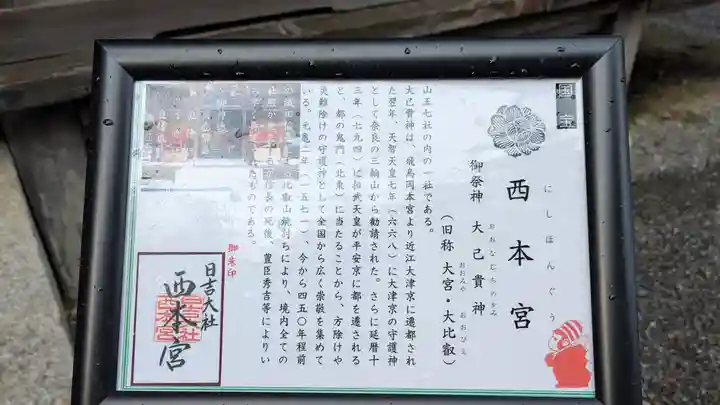 国宝
西本宮
にしほんぐう
御祭神 大己貴神
おおなむちのかみ
(旧称 大宮・大比叡)
おおみや おおびえ
山王七社の内の一社である。
大己貴神は、飛鳥岡本宮より近江大津京に遷都され
た翌年、天智天皇七年(六六八)に大津京の守護神
として奈良の三輪山から勧請された。さらに延暦十
三年(七九四)に桓武天皇が平安京に都を遷される
と、都の鬼門(北東)に当たることから、方除けや
災難除けの守護神として全国から広く崇敬を集めて
いる。元亀二年(一五七一)、今から四五〇年程前
の織田
比叡山焼討ちにより、境内全ての
社殿が
信長の死後、豊臣秀吉等によりい
たものである。
御朱印
日吉大社
西本宮